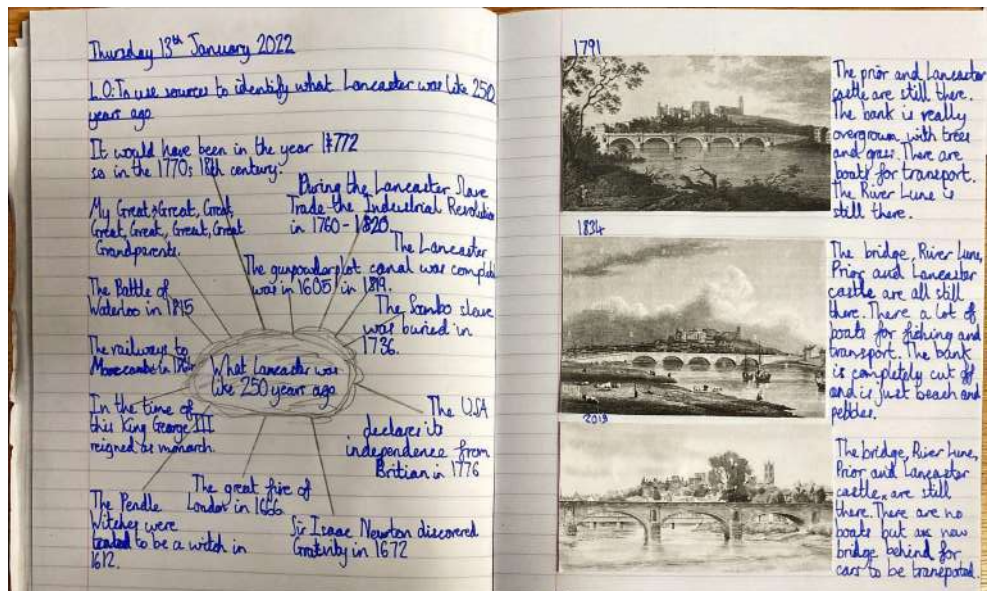 Thursday 13th January 2022
L.O: To use sources to identify what Lancaster was like 250
years ago
It would have been in the year 1772
so in the 1770s 18th century.
During the Lancaster Slave
Trade the Industrial Revolution
in 1760-1820.
My Great, Great, Great,
Great, Great, Great, Great
Grandparents.
The Lancaster
canal was complete
in 1819.
The gunpowder plot
was in 1605
The Battle of
Waterloo in 1815
The Sambo slave
was buried in
1736.
The railways to
Morecambe in
What Lancaster was
like 250 years ago
In the time of
this King George III
reigned as monarch.
The USA
declares its
independence from
Britian in 1776
The great fire of
London in 1666
The Pendle
Witches were
to be a witch in
1612.
Sir Isaac Newton discovered
Grativity in 1672
1791
The prior and Lancaster
castle are still there.
The bank is really
overgrown with trees
and grass. There are
boats for transport.
The River Lune is
still there.
1834
The bridge, River Lune,
Prior and Lancaster
castle are all still
there. There a lot of
boats for fishing and
transport. The bank
is completely cut off
and is just beach and
pebbles.
2013
The bridge, River Lune,
Prior and Lancaster
castle are still
there. There are no
boats but new
bridge behind for
cars to be transported.